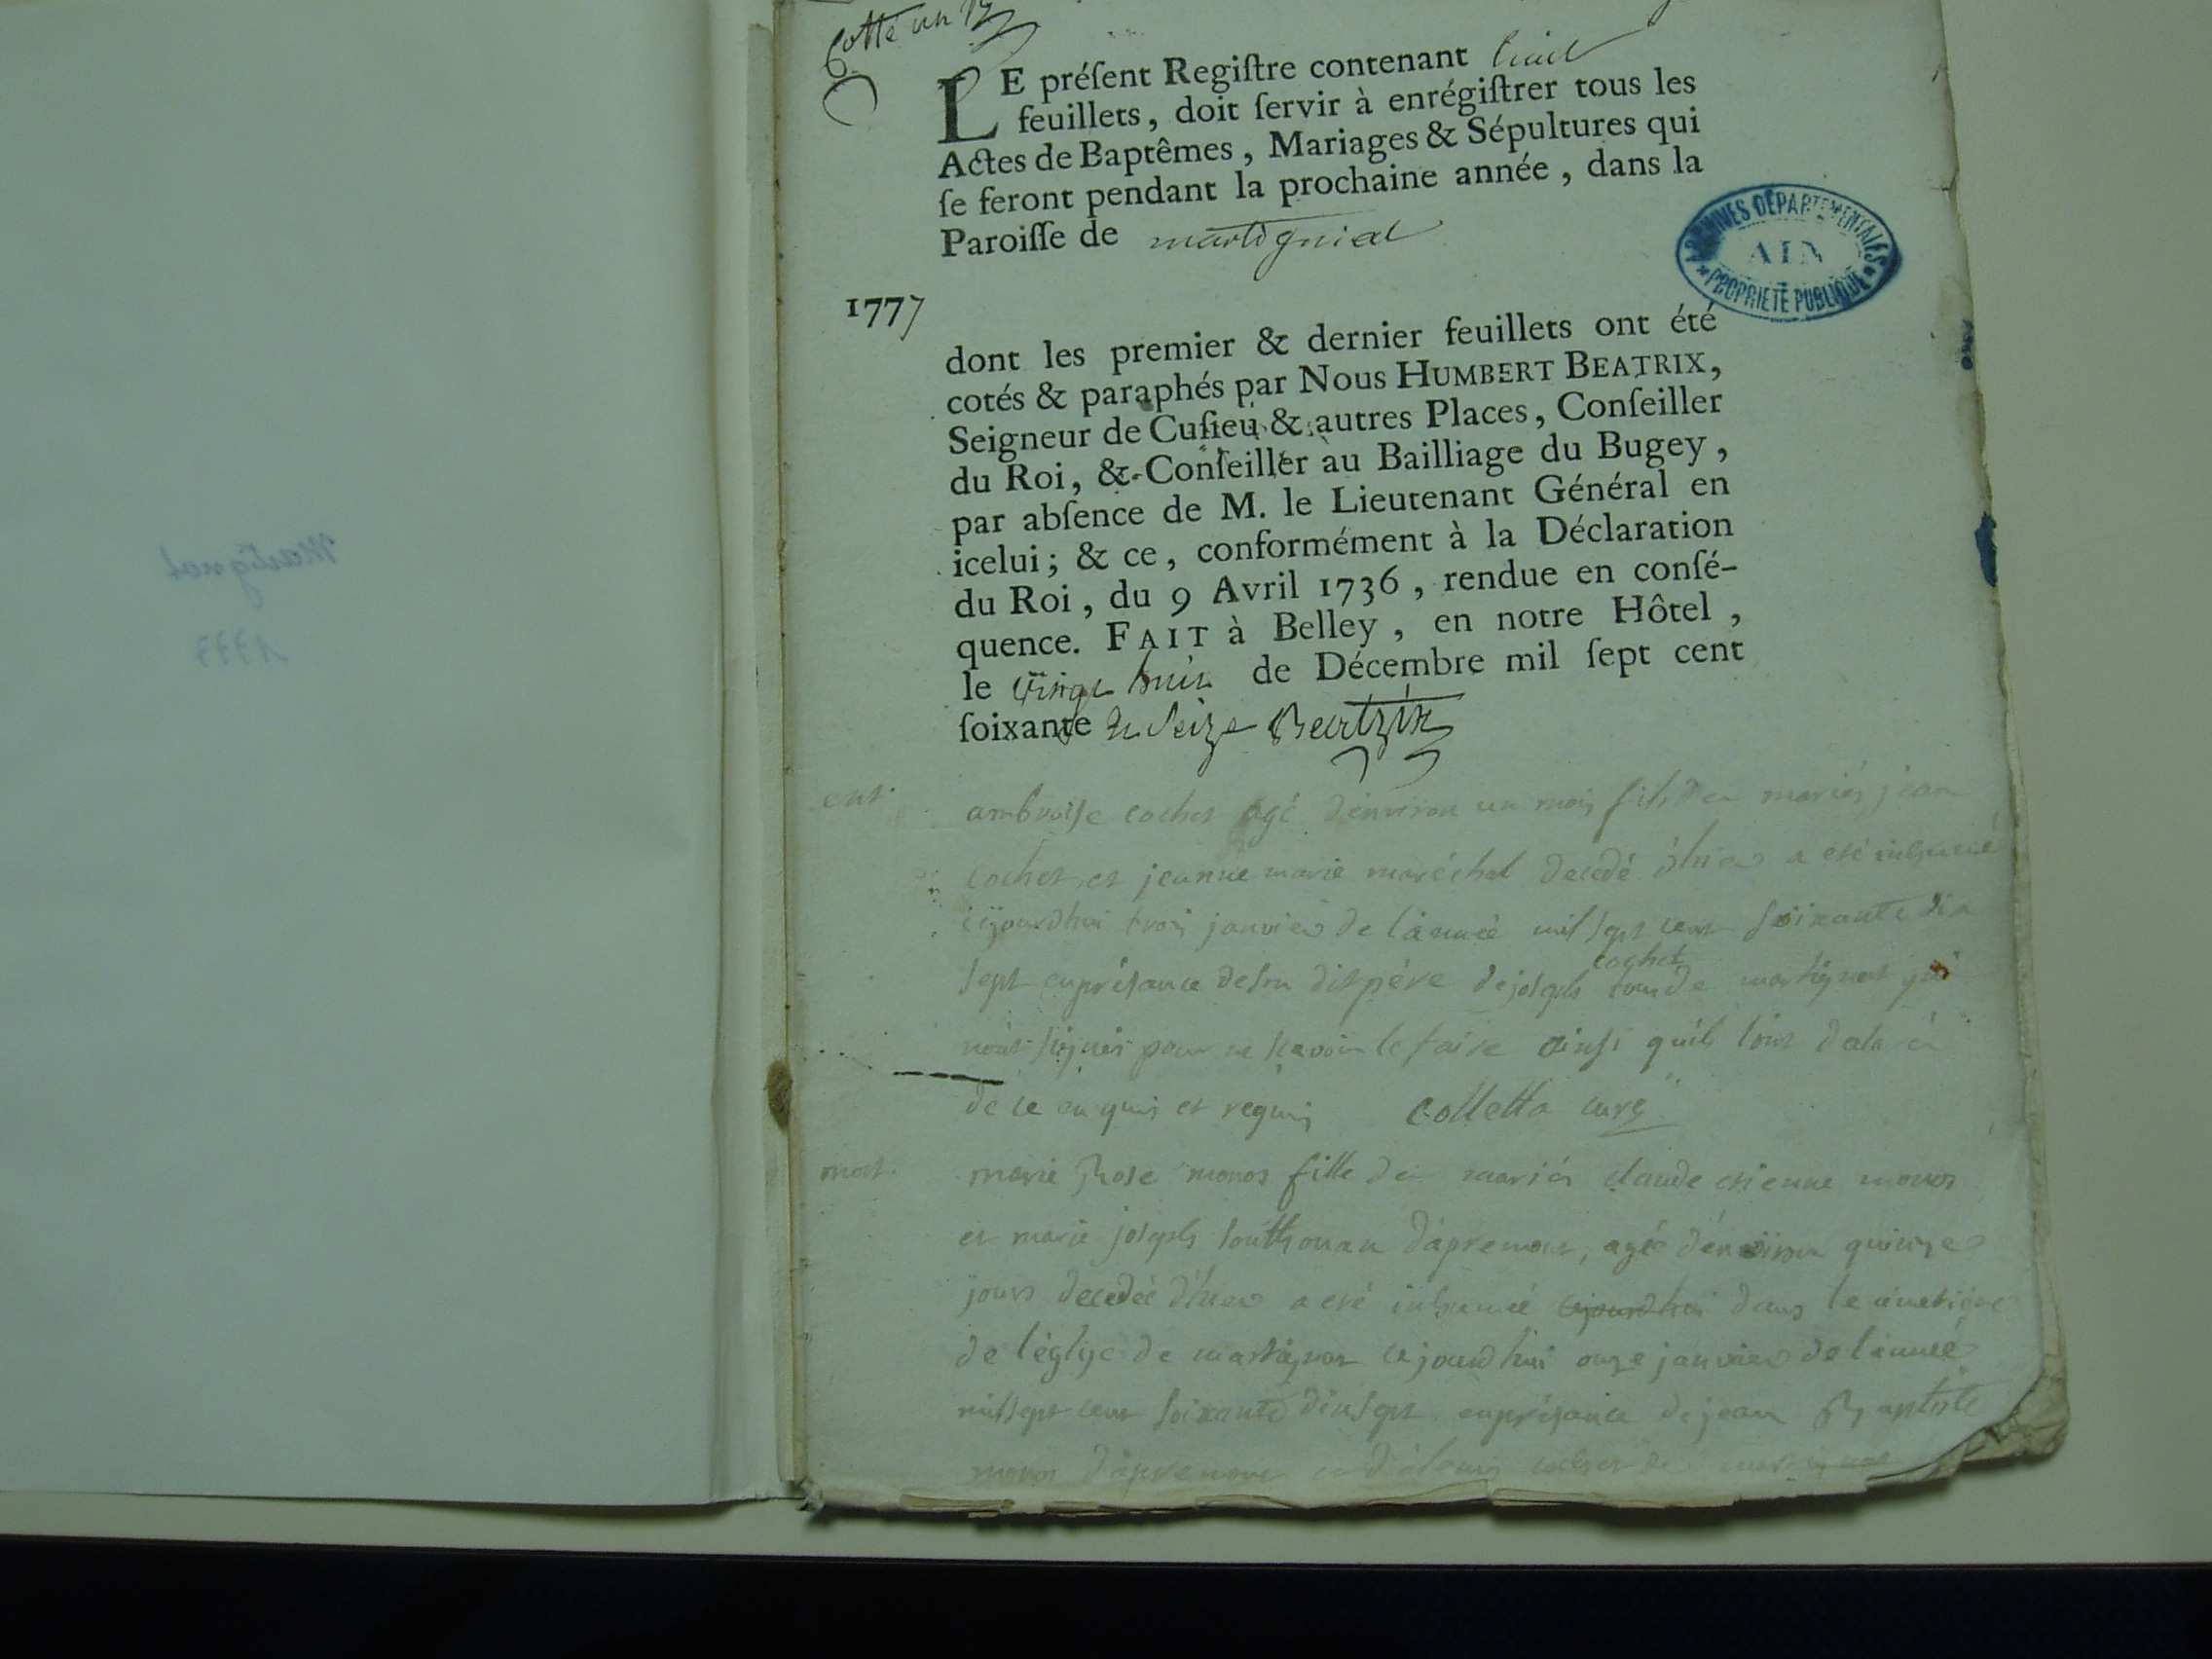 Cotté un
LE préſent Regiſtre contenant huit
feuillets, doit ſervir à enrégiſtrer tous les
Actes de Baptêmes, Mariages & Sépultures qui
ſe feront pendant la prochaine année, dans la
Paroiſſe de martigniat
ARCHIVES DÉPARTEMENTALES
AIN
PROPRIÉTÉ PUBLIQUE
1777
dont les premier & dernier feuillets ont été
cotés & paraphés par Nous HUMBERT BEATRIX,
Seigneur de Cuſieu & autres Places, Conſeiller
du Roi, & Conſeiller au Bailliage du Bugey,
par abſence de M. le Lieutenant Général en
icelui; & ce, conformément à la Déclaration
du Roi, du 9 Avril 1736, rendue en conſé-
quence. FAIT à Belley, en notre Hôtel,
le vingt huit de Décembre mil ſept cent
ſoixante et seize Beatrix
Martignat
1777
ambroise cochet agé d'environ un mois fils des mariés jean
cochet et jeanne marie maréchal decedé d'hier a eté inhumé
cejourdhui trois janvier de l'année mil sept cent soixante dix
sept en présance de son dit père de joseph cochet de martignat qui
n'ont signés pour ne scavoir le faire ainsi qu'ils l'ont
de ce enquis et requis colletta curé
mort.
marie Rose monos fille des mariés claude etienne monos
et marie joseph southonan d'apremont, agée d'environ quinze
jours decedée d'hier a eté inhumée cejourdhui dans le cimetiere
de l'églisse de martignat cejourdhui onze janvier de l'année
mil sept cent soixante dix sept en présance de jean Baptiste
monos d'apremont